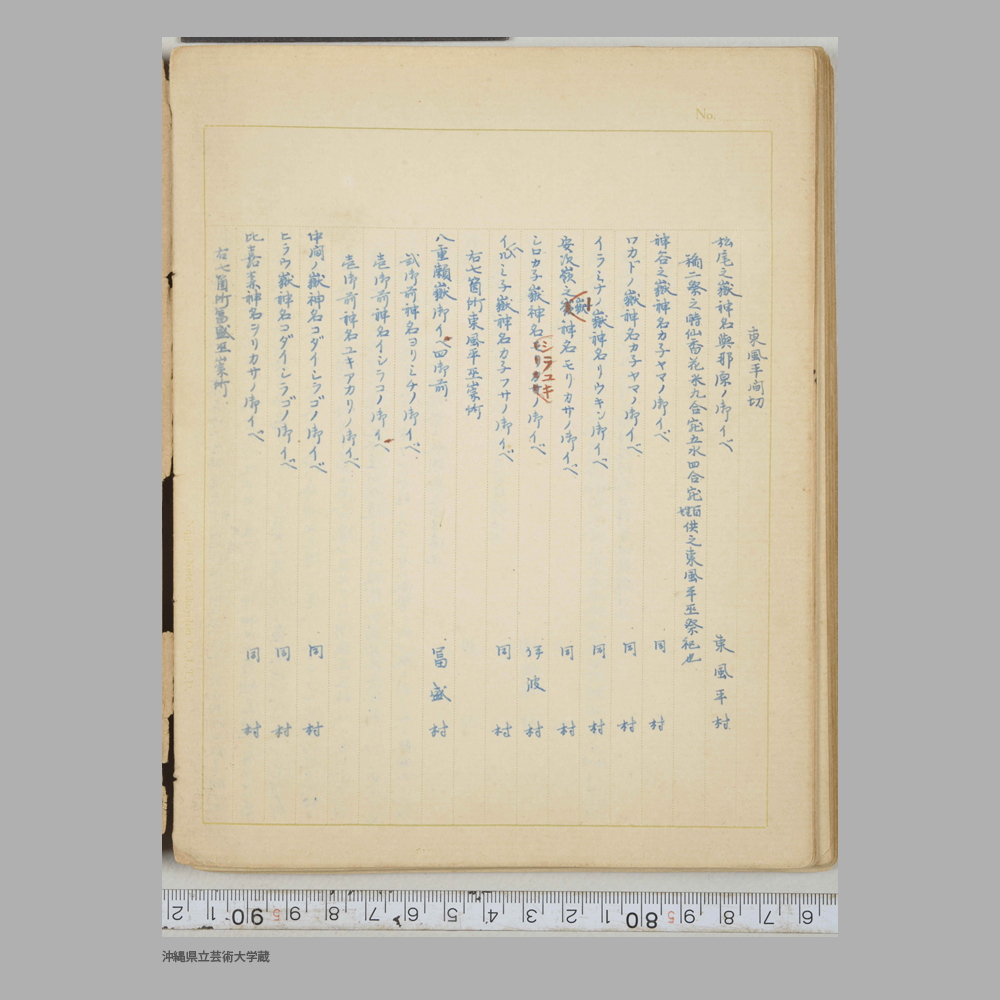 No.
東風平間切
松尾之嶽神名與那原ノ御イベ 東風平村
稲二祭之時仙香花米九合宛五水四合宛百姓供之東風平巫祭祀也
神谷之嶽神名カ子ヤマノ御イベ 同村
ワカドノ嶽神名カ子ヤマノ御イベ 同村
イラミナノ嶽神名リウキンノ御イベ 同村
安次嶺之嶽神名モリカサノ御イベ 同村
シロカ子嶽神名シラユキノ御イベ 伊波村
イ瓜ミ子嶽神名カ子フサノ御イベ 同村
右七箇所東風平巫崇所
八重瀬嶽御イベ四御前 冨盛村
弐御前神名ヨリミチノ御イベ
壱御前神名イシラコノ御イベ
壱御前神名ユキアカリノ御イベ
中間ノ嶽神名コダイシラゴノ御イベ 同村
ヒラウ嶽神名コダイシラゴノ御イベ 同村
比嘉森神名ヲリカサノ御イベ 同村
右七箇所冨盛巫崇所
2 1 90 5 9 8 7 6 5 4 3 2 1 80 5 9 8 7 6
沖縄県立芸術大学蔵